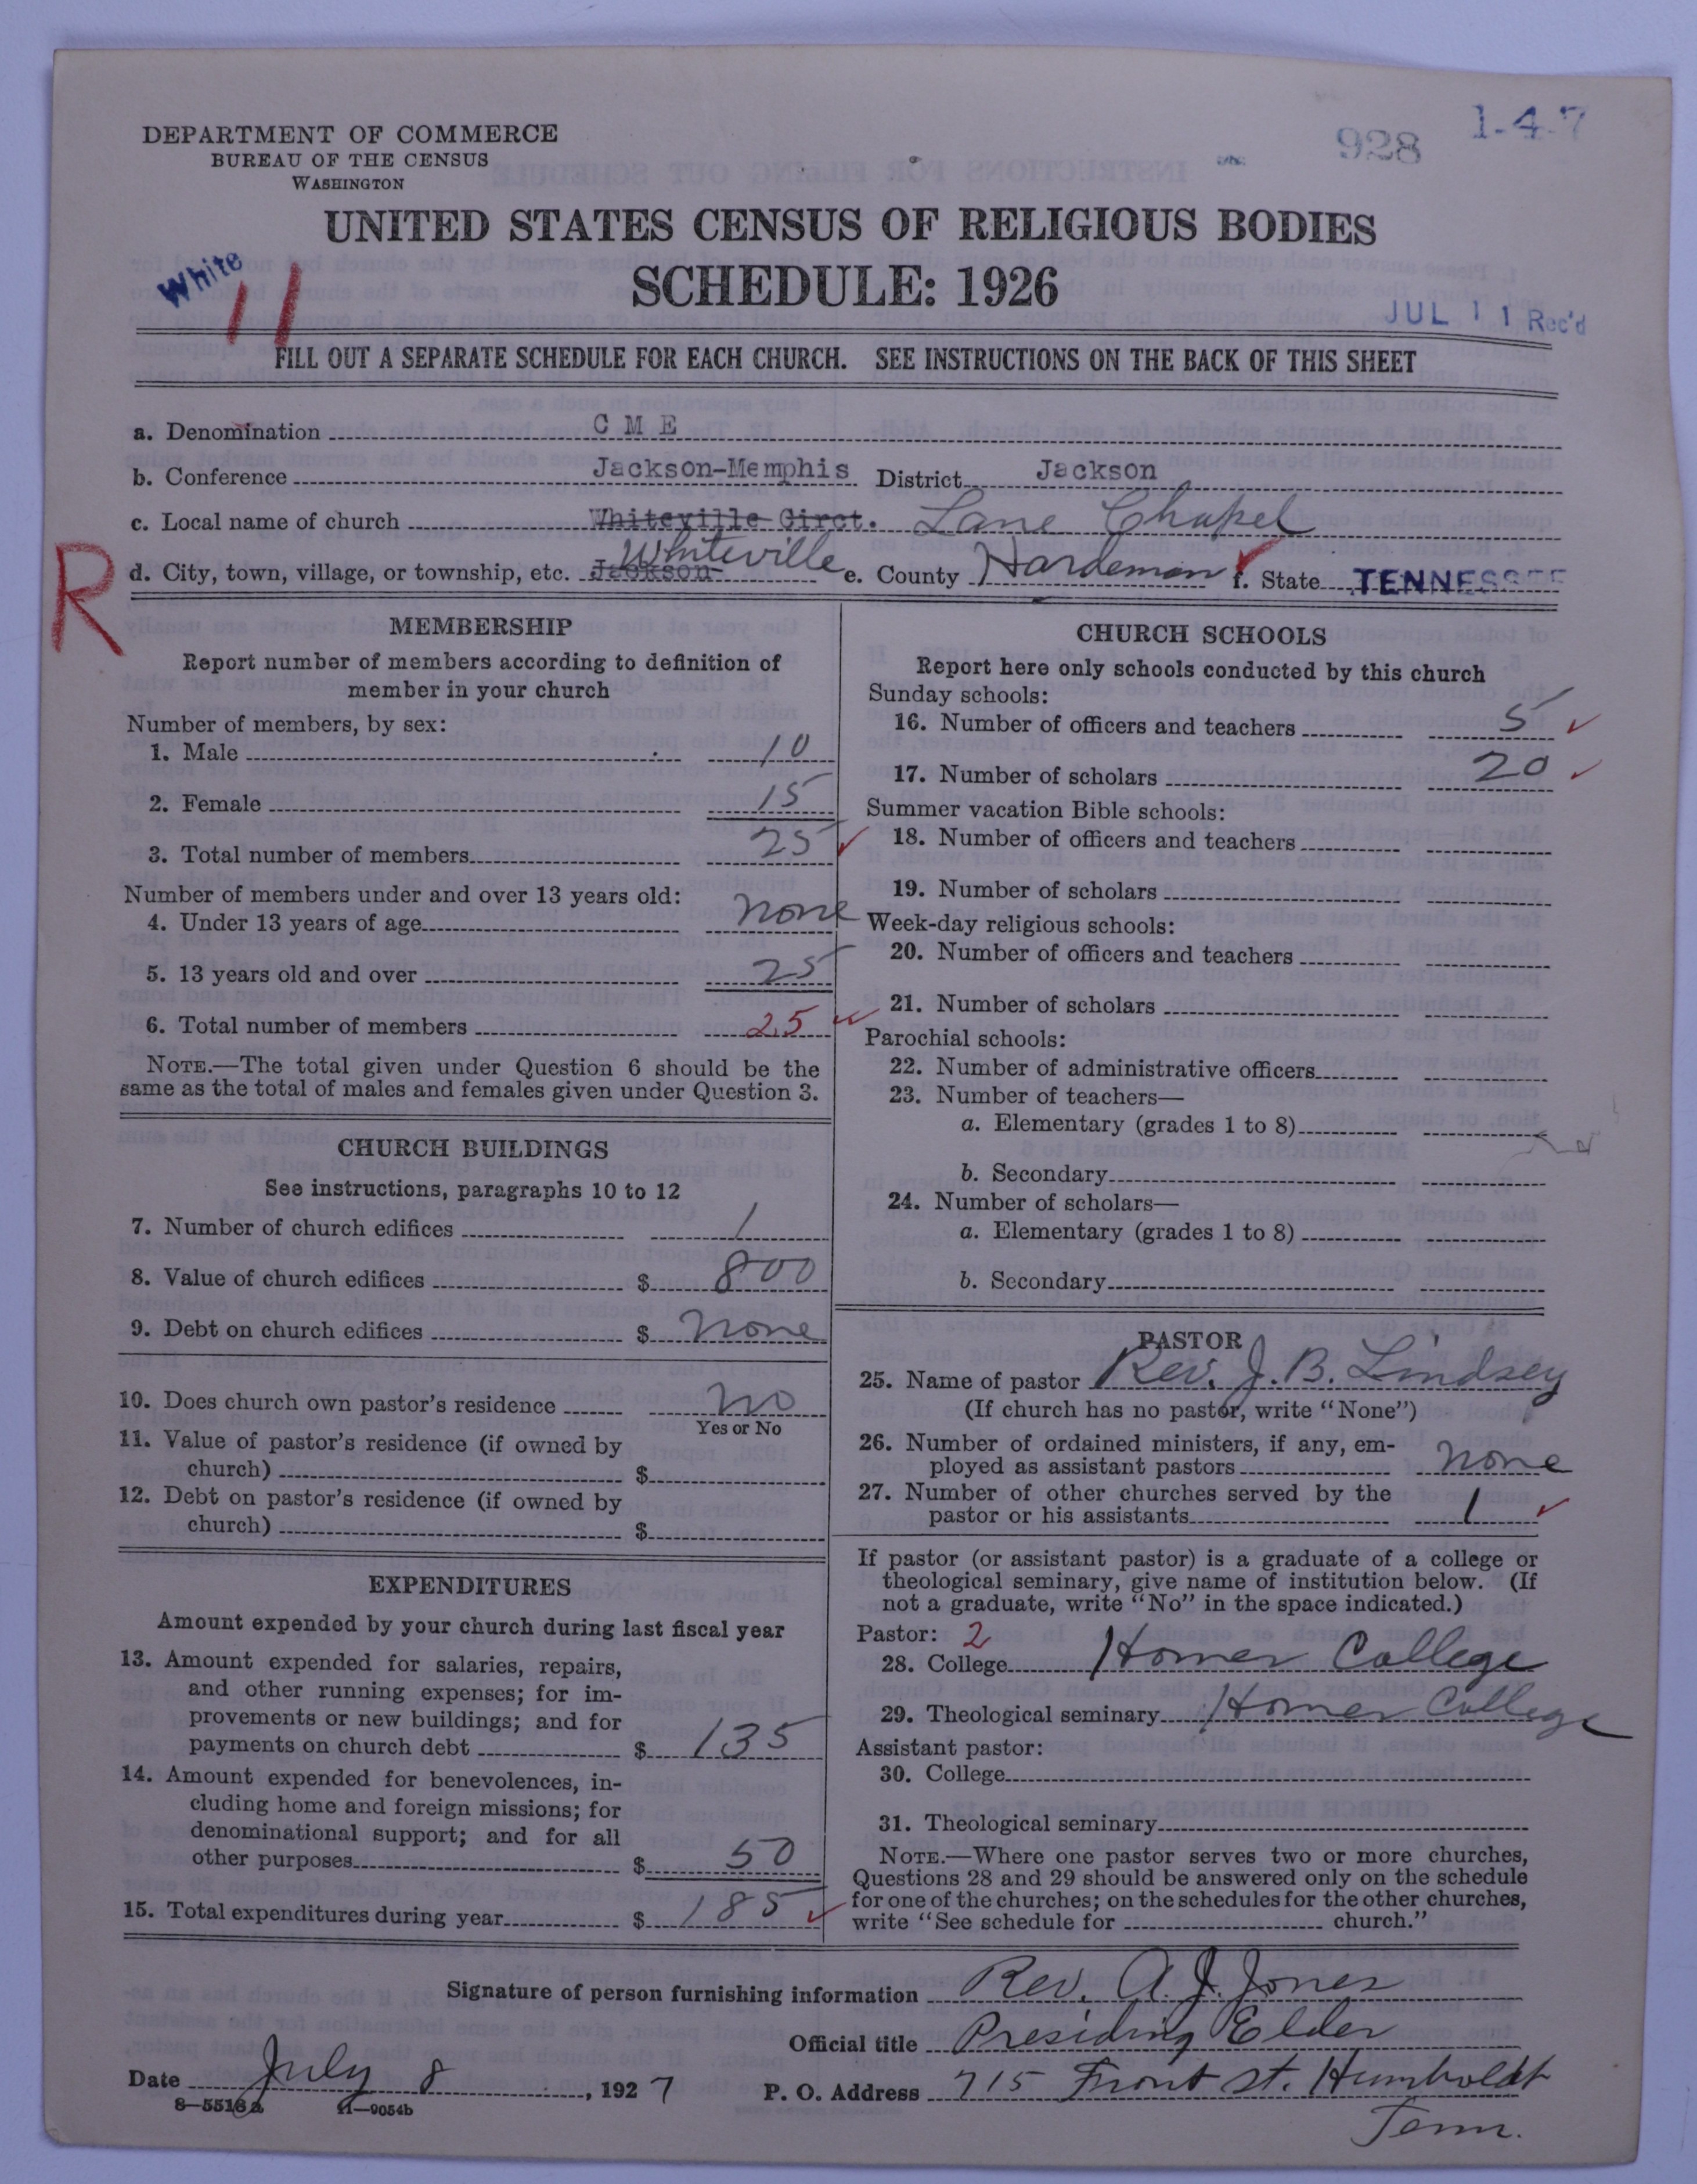 DEPARTMENT OF COMMERCE
BUREAU OF THE CENSUS
WASHINGTON
928
1-4-7
UNITED STATES CENSUS OF RELIGIOUS BODIES
SCHEDULE: 1926
White
11
JUL 11 Rec'd
FILL OUT A SEPARATE SCHEDULE FOR EACH CHURCH. SEE INSTRUCTIONS ON THE BACK OF THIS SHEET
a. Denomination C M E
b. Conference Jackson-Memphis District Jackson
c. Local name of church Whiteville Circt. Lane Chapel
d. City, town, village, or township, etc. Jackson Whiteville e. County Hardeman f. State TENNESSEE
R
MEMBERSHIP
Report number of members according to definition of
member in your church
Number of members, by sex:
1. Male 10
2. Female 15
3. Total number of members 25
Number of members under and over 13 years old:
4. Under 13 years of age none
5. 13 years old and over 25
6. Total number of members 25
NOTE.—The total given under Question 6 should be the
same as the total of males and females given under Question 3.
CHURCH BUILDINGS
See instructions, paragraphs 10 to 12
7. Number of church edifices 1
8. Value of church edifices $ 800
9. Debt on church edifices $ none
10. Does church own pastor's residence no
Yes or No
11. Value of pastor's residence (if owned by
church) $
12. Debt on pastor's residence (if owned by
church) $
EXPENDITURES
Amount expended by your church during last fiscal year
13. Amount expended for salaries, repairs,
and other running expenses; for im-
provements or new buildings; and for
payments on church debt $ 135
14. Amount expended for benevolences, in-
cluding home and foreign missions; for
denominational support; and for all
other purposes $ 50
15. Total expenditures during year $ 185
CHURCH SCHOOLS
Report here only schools conducted by this church
Sunday schools:
16. Number of officers and teachers 5
17. Number of scholars 20
Summer vacation Bible schools:
18. Number of officers and teachers
19. Number of scholars
Week-day religious schools:
20. Number of officers and teachers
21. Number of scholars
Parochial schools:
22. Number of administrative officers
23. Number of teachers—
a. Elementary (grades 1 to 8)
b. Secondary
24. Number of scholars—
a. Elementary (grades 1 to 8)
b. Secondary
PASTOR
25. Name of pastor Rev. J. B. Lindsey
(If church has no pastor, write "None")
26. Number of ordained ministers, if any, em-
ployed as assistant pastors none
27. Number of other churches served by the
pastor or his assistants 1
If pastor (or assistant pastor) is a graduate of a college or
theological seminary, give name of institution below. (If
not a graduate, write "No" in the space indicated.)
Pastor: 2
28. College Homer College
29. Theological seminary Homer College
Assistant pastor:
30. College
31. Theological seminary
NOTE.—Where one pastor serves two or more churches,
Questions 28 and 29 should be answered only on the schedule
for one of the churches; on the schedules for the other churches,
write "See schedule for church."
Signature of person furnishing information Rev. A. J. Jones
Official title Presiding Elder
Date July 8, 1927 P. O. Address 715 Front st. Humboldt
Tenn.
8—5518a 11—9054b